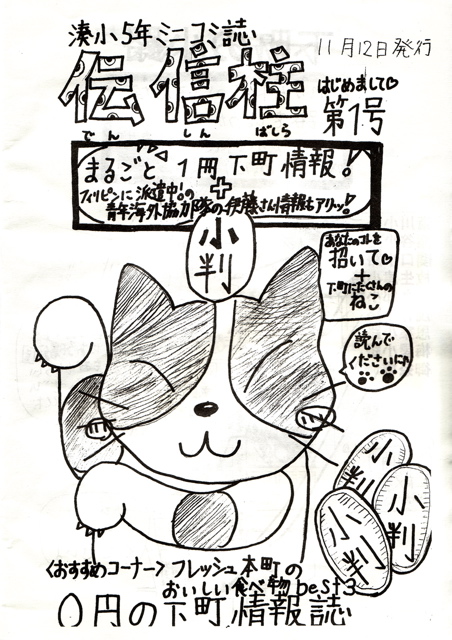 湊小5年ミニコミ誌
11月12日発行
伝信柱
でんしんばしら
はじめまして♡
第1号
まるごと1冊下町情報!
+
フィリピンに派遣中。の
青年海外協力隊の伊藤さん情報もアリッ!
小判
あなたのコレを
招いて♡
+
下町にたくさんの
ねこ
読んで
くださいニャ
小判
小判
小判
<おすすめコーナー>フレッシュ本町の
おいしい食べ物best3
0円の下町情報誌